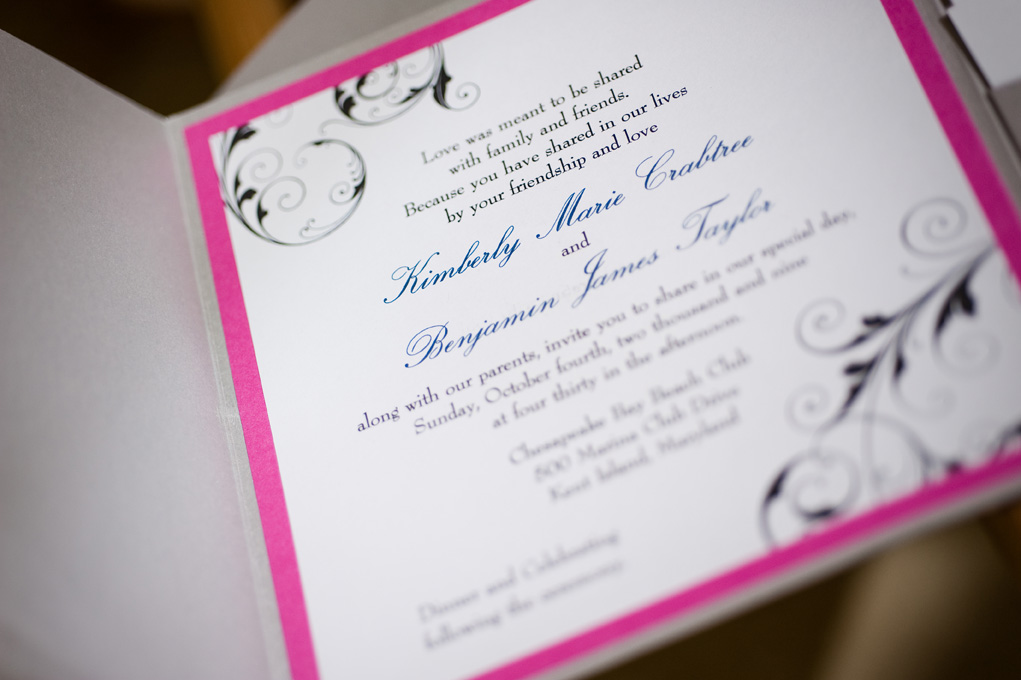 Love was meant to be shared
with family and friends.
Because you have shared in our lives
by your friendship and love
Kimberly Marie Crabtree
and
Benjamin James Taylor
along with our parents, invite you to share in our special day,
Sunday, October fourth, two thousand and nine
at four thirty in the afternoon.
Chesapeake Bay Beach Club
500 Marina Club Drive
Kent Island, Maryland
Dinner and Celebrating
following the ceremony